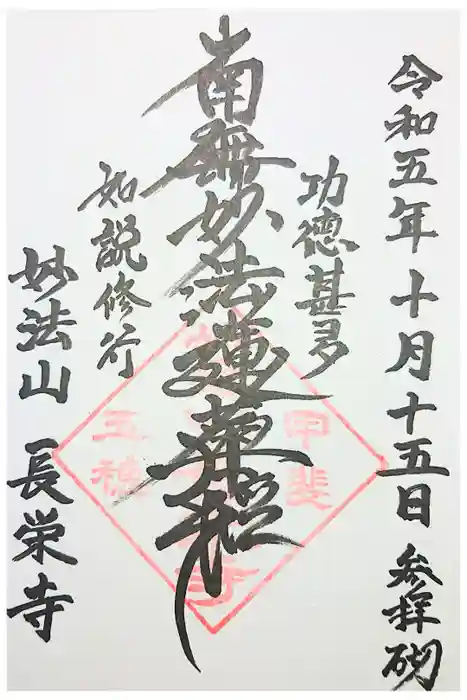 令和五年十月十五日 参拝砌
功徳甚多
南無妙法蓮華経
如説修行
妙法山 長栄寺
甲斐
玉穂